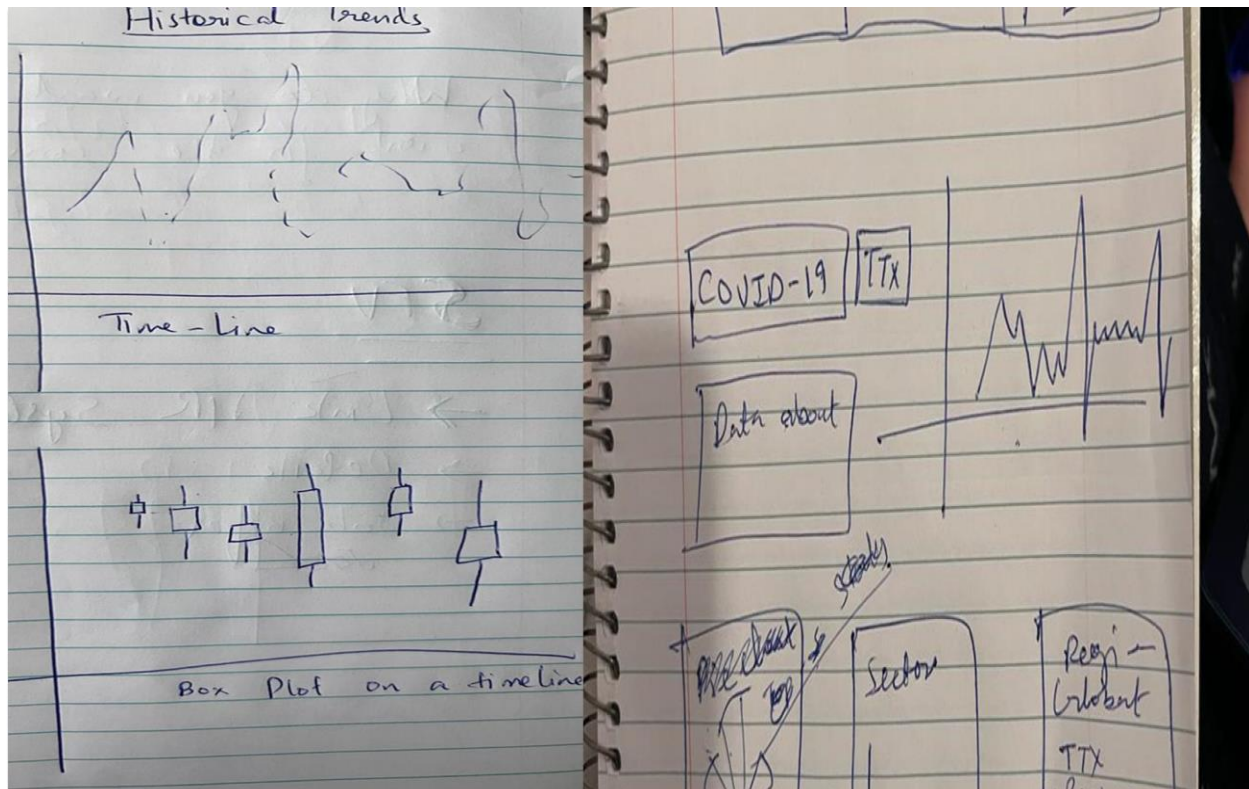 Historical Trends
Time-Line
Box Plot on a timeline
COVID-19
TTX
Data about
Sector
Regi-
TTX